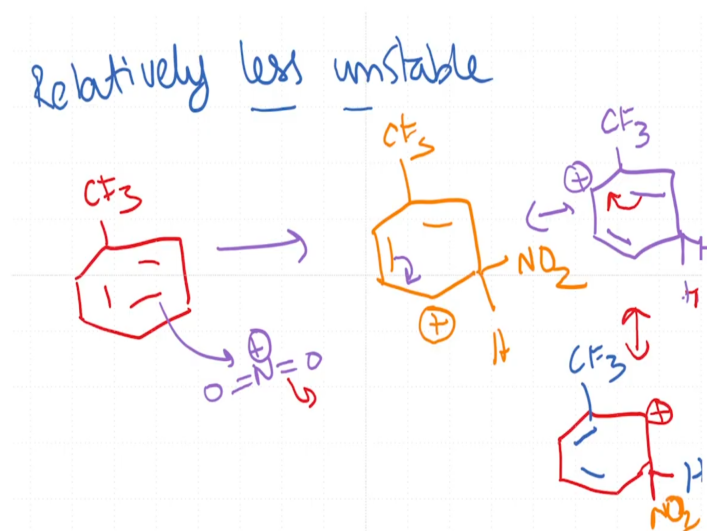 Relatively less unstable
CF3
CF3
CF3
⊕
NO2
⊕
H
H
⊕
O=N=O
CF3
⊕
H
NO2